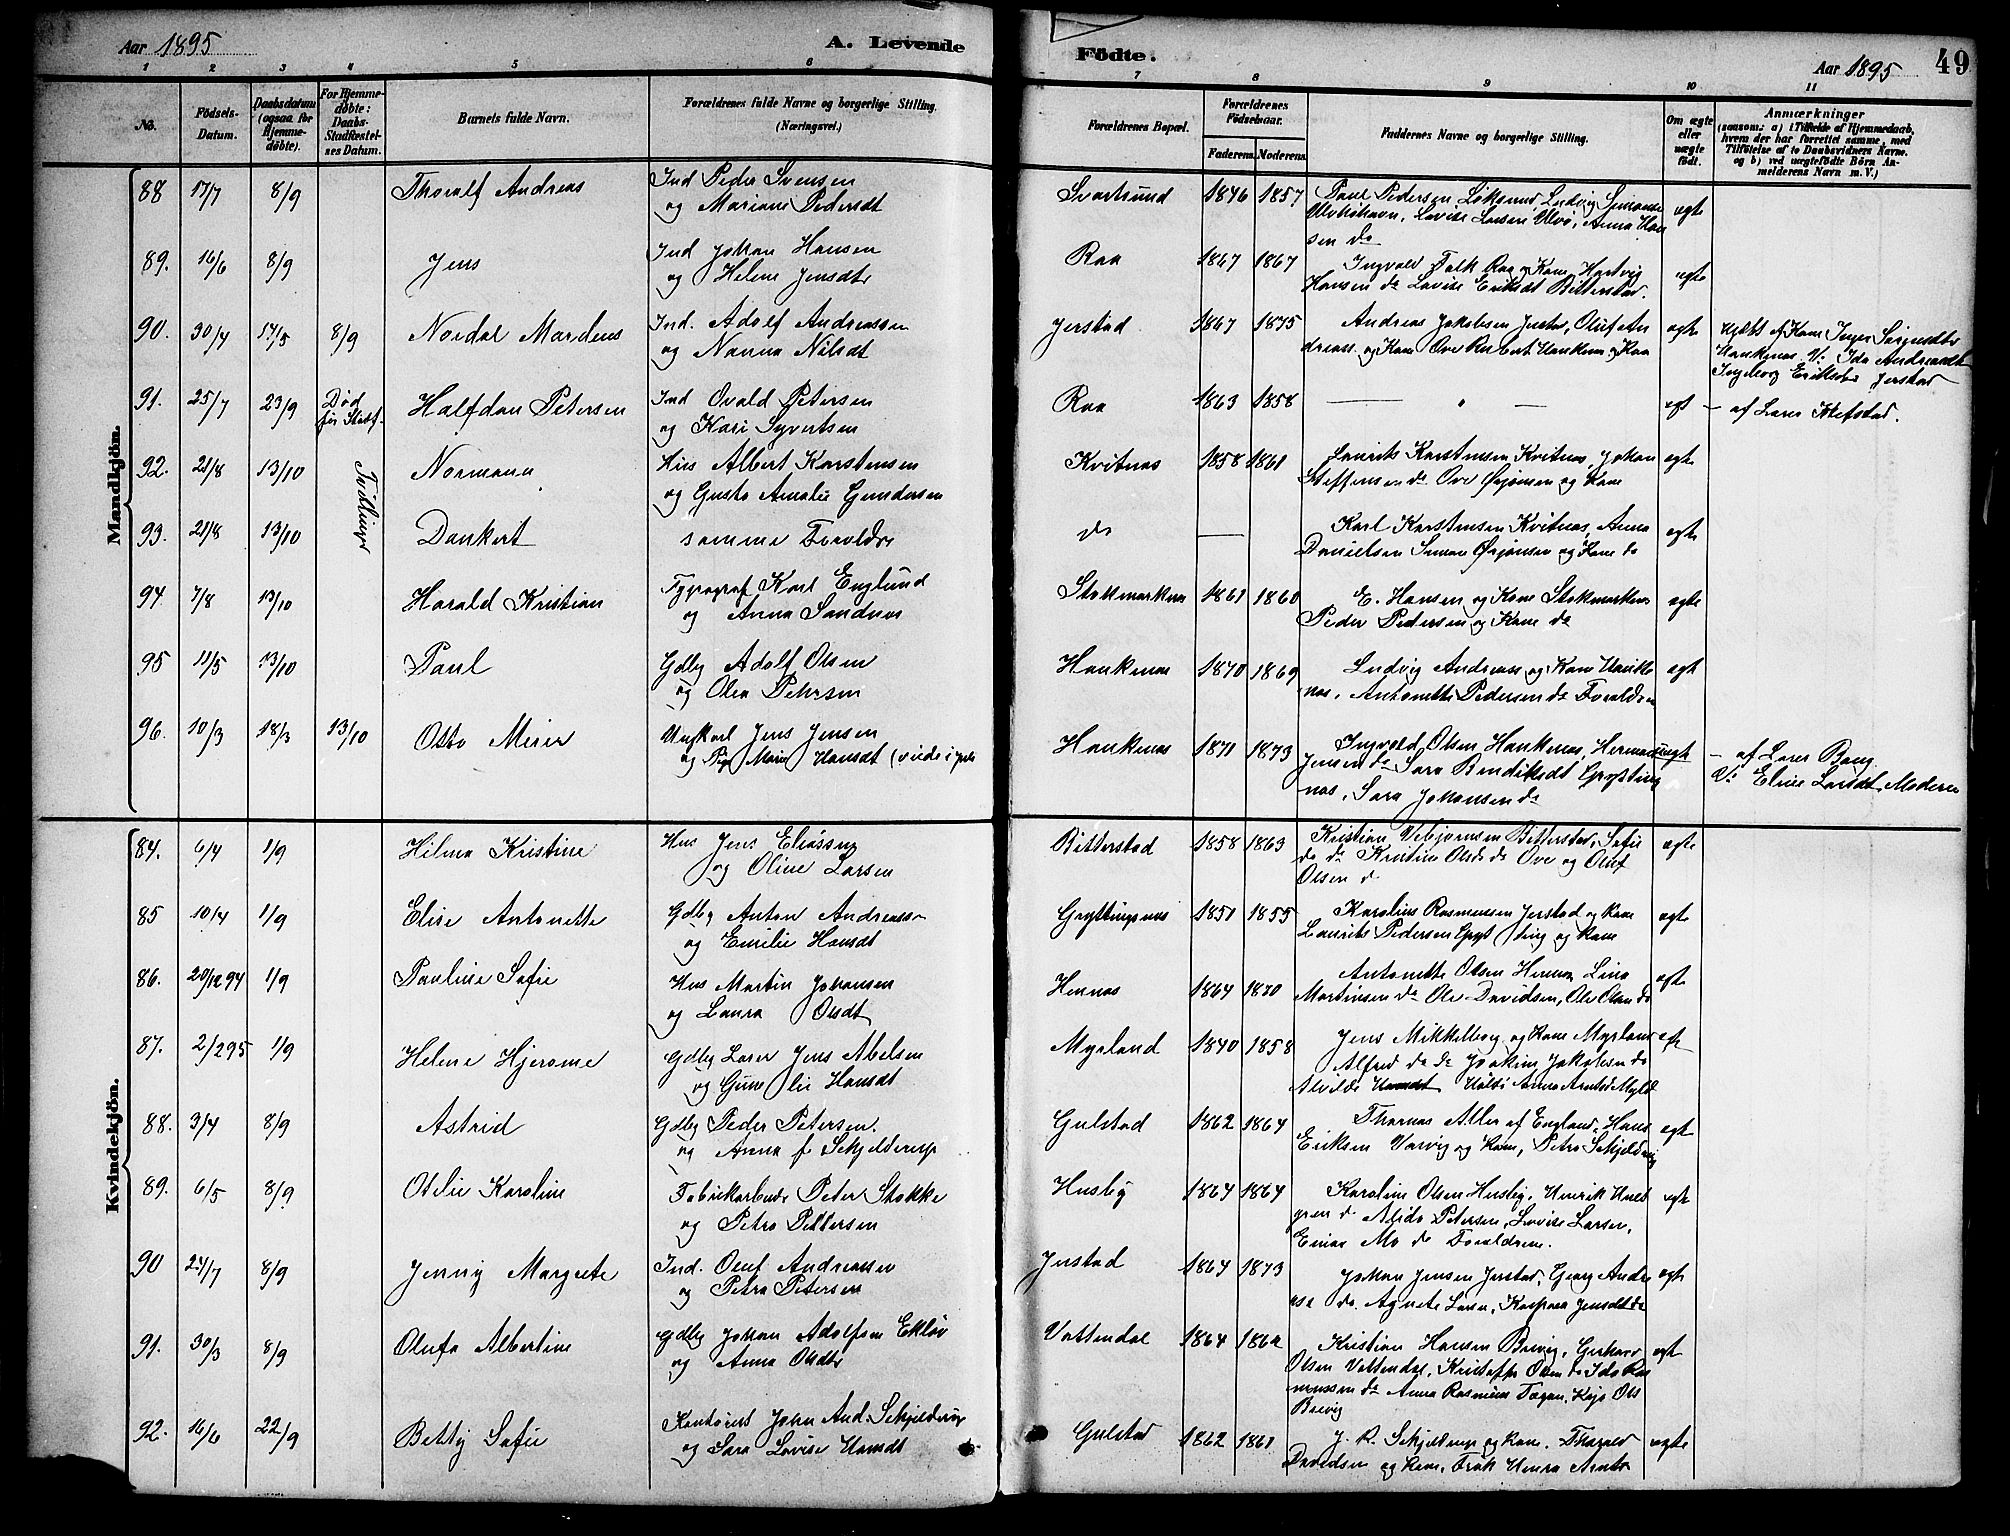 Aar 1895
A. Levende
Födte.
Aar 1895
49
1 2 3 4 5 6 7 8 9 10 11
No.
Födsels-Datum.
Daabsdatum (ogsaa for Hjemmedöbte).
For Hjemmedöbte: Daabs-Stadfæstelses Datum.
Barnets fulde Navn.
Forældrenes fulde Navne og borgerlige Stilling.
(Næringsvei.)
Forældrenes Bopæl.
Forældrenes Födselsaar.
Faderens. Moderens.
Faddernes Navne og borgerlige Stilling.
Om ægte eller uægte födt.
Anmærkninger
(saasom: a) i Tilfælde af Hjemmedaab, hvem der har forrettet samme, med Tilföielse af to Daabsvidners Navne. og b) ved uægtefödte Börn Anmelderens Navn m. V.)
Mandkjön.
88 17/7 8/9 Thoralf Andreas
Ind Peder Svensen
og Mariane Pedersdt
Svartsund 1846 1857
Paul Pedersen Ludvig
Lovise Larsen Ulvø, Anna Han
sen do
ægte
89. 16/6 8/9 Jens
Ind Johan Hansen
og Helene Jensdtr
Raa 1867 1867
Ingvald Falk Raa og Kone, Hartvig
Hansen do Lovise Eriksdt Bitterstad.
ægte
90. 30/4 14/5 8/9 Nordal Mardeus
Ind. Adolf Andreassen
og Nanna Nilsdt
Jerstad 1867 1875
Andreas Jakobsen Jerstad, Oluf An
dreass. og Kone Ove Rubert Haukenes og Kone
ægte
Hjdbt af Kone Inger
Haukenes V: Ida Andreasdt
Ingeborg Eriksdtr Jerstad
91. 25/7 23/9 Død før Stadf. Halfdan Petersen
Ind Ovald Petersen
og Kari Syvertsen
Raa 1863 1858
— " —
ægt
— af Lærer Klefstad.
92. 21/8 13/10 Normann
Hus Albert Karstensen
og Gusta Amalie Gundersen
Kvitnes 1858 1861
Laurits Karstensen Kvitnes, Johan
Steffensen do Ove Ørjansen og Kone
ægte
Tvillinger
93. 21/8 13/10 Dankert
samme Forældre
do —
Karl Karstensen Kvitnes, Anna
Danielsen Simon Ørjansen og Kone do
ægte
94 7/8 13/10 Harald Kristian
Typograf Karl Englund
og Anna Sandnes
Stokmarknes 1861 1860
E. Hansen og Kone Stokmarknes
Peder Pedersen og Kone do
ægte
95 11/5 13/10 Paul
Gdbg Adolf Olsen
og Olea Pehrsen
Haukenes 1870 1869
Ludvig Andreass og Kone Hauke
nes, Antonette Pedersen do Forældrene
ægt
96. 10/3 18/3 13/10 Otto Meier
Ungkarl Jens Jensen
og Pige Marie Hansdt
Haukenes 1871 1873
Ingvald Olsen Haukenes, Herman
Jensen do Sara Bendiksdt Grytting
nes, Sara Johansen do
uægt
— af Lærer Bang
V: Eline Larsdt, Moderen
Kvindekjön.
84. 6/4 1/9 Hilma Kristine
Hus Jens Eliassen
og Oline Larsen
Bitterstad 1858 1863
Kristian Vebjørnsen Bitterstad, Sofie
do do Kristine Olsdt do Ove og Oluf
Olsen d
ægte
85 10/4 1/9 Elise Antonette
Gdbg Anton Andreass
og Emilie Hansdt
Gryttingnes 1851 1855
Karolius Rasmussen Jerstad og Kone
Laurits Pedersen Grytting og Kone
ægte
86. 20/12 94 1/9 Pauline Sofie
Hus Martin Johansen
og Laura Olsdt
Hennes 1864 1870
Antonette Olsen Hennes, Lina
Martinsen do Ole Davidsen, Ole Olsen do
ægte
87. 2/2 95 1/9 Helene Hjerome
Gdbg Lærer Jens Abelsen
og Gunelie Hansdt
Myrland 1840 1858
Jens Mikkelborg og Kone Myrland
Alfred do do Joakim Jakobsen do
Alvilde Anna
88. 3/4 8/9 Astrid
Gdbg Peder Petersen.
og Anna f Schjelderup
Gulstad 1862 1864
Thomas Aller af England, Hans
Eriksen Varvig og Kone, Petra Schjelderup
ægt
89. 6/5 8/9 Otelie Karoline
Fabrikarbeider Peter Stokke
og Petra Pettersen
Husby 1864 1864
Karoline Olsen Husby, Henrik Hult
gren do Alida Petersen, Lovise Larsen,
Einar Mo do Forældrene.
ægt
90 24/7 8/9 Jenny Margrete
Ind. Oluf Andreassen
og Petra Petersen
Jerstad 1864 1873
Johan Jensen Jerstad, Georg Andre
ass do, Agnete Larsen, Kaspara Jensdt do
ægt
91. 30/3 8/9 Olufa Albertine
Gdbg Johan Adolfsen Ekløv
og Anna Olsdtr
Vottendal 1864 1862
Kristian Hansen Breivig, Gerhard
Olsen Vottendal, Kristoffer Olsen do Ida Ras
mussen do Anna Rasmussen Kajo Ols
Breivig
ægt
92. 16/6 22/9 Betty Sofie
Kontorist John And. Schjelderup
og Sara Lovise Hansdt
Gulstad 1862 1861
J. R. Schjelderup og Kone. Thorvald
Davidsen og Kone, Frøk
ægte